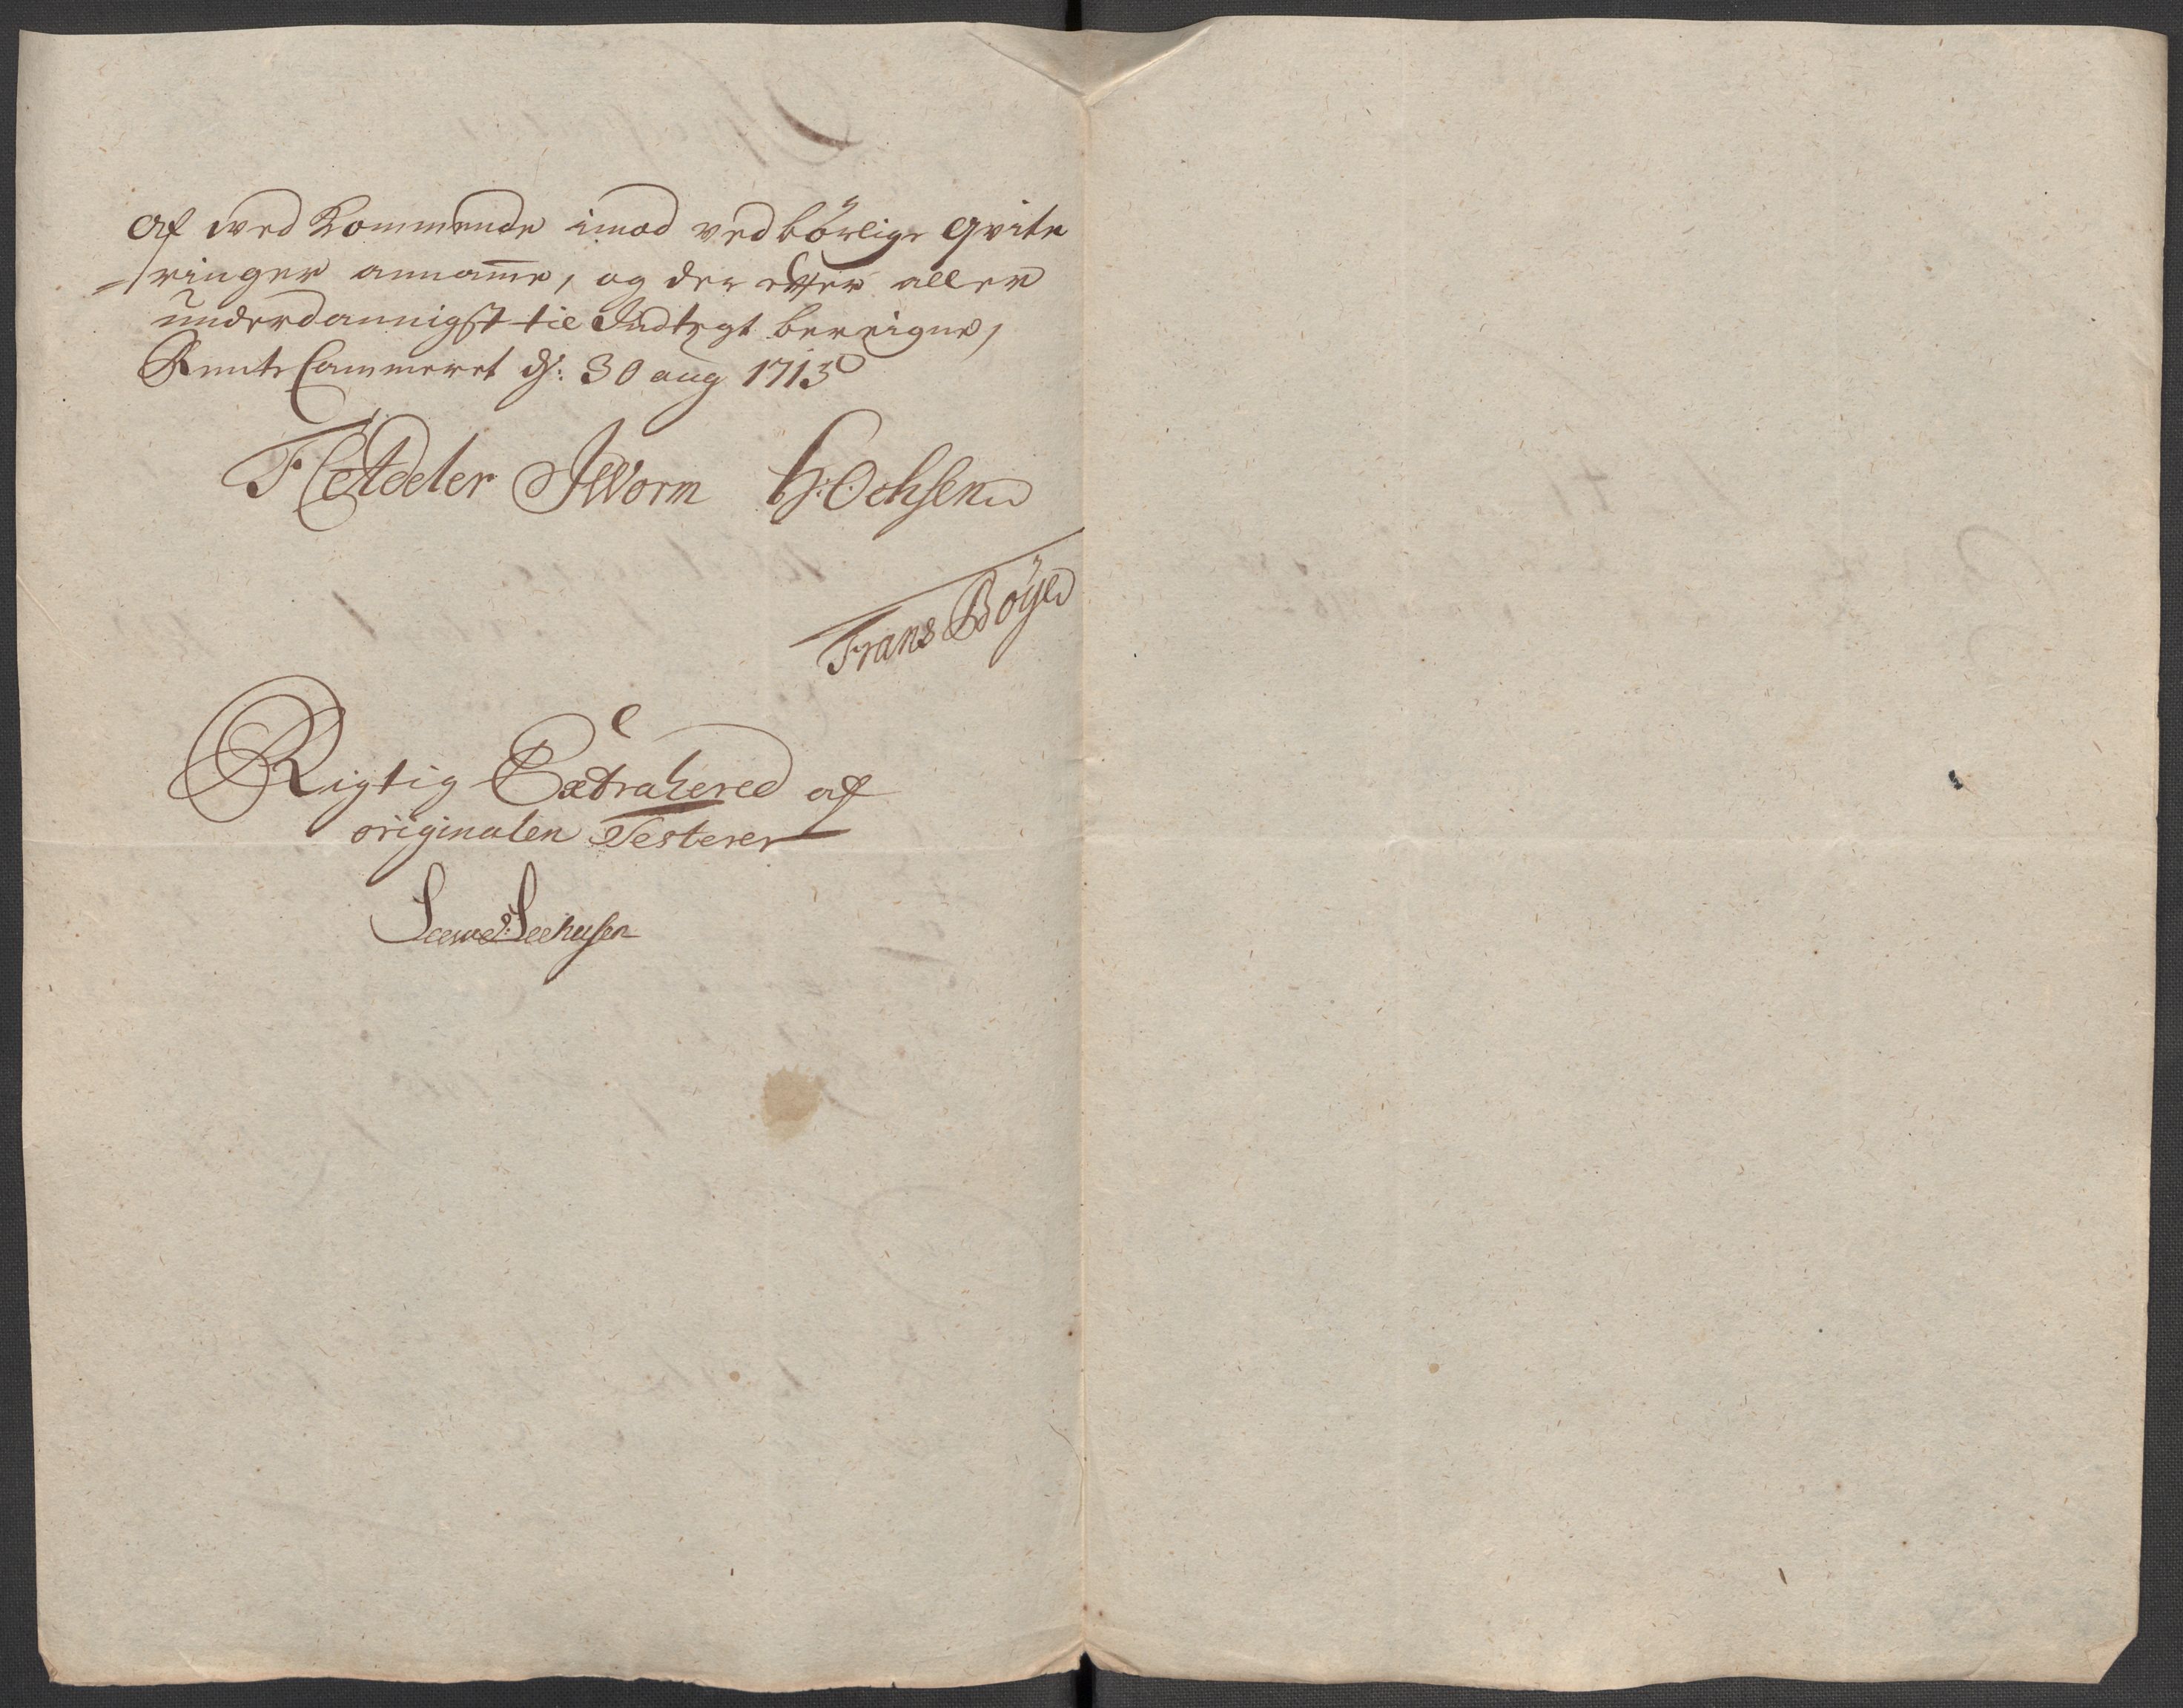 af wed Kommende imod vedbörlige qvite
ringer anname, og der effter aller
underdannigst til Indtegt bereigne,
Rente Cammeret d: 30 aug 1713
F C Adeler JWorm H: Ochsen
Frans Böyed
Rigtig Extrahered af
originalen Testerer
Seehusen